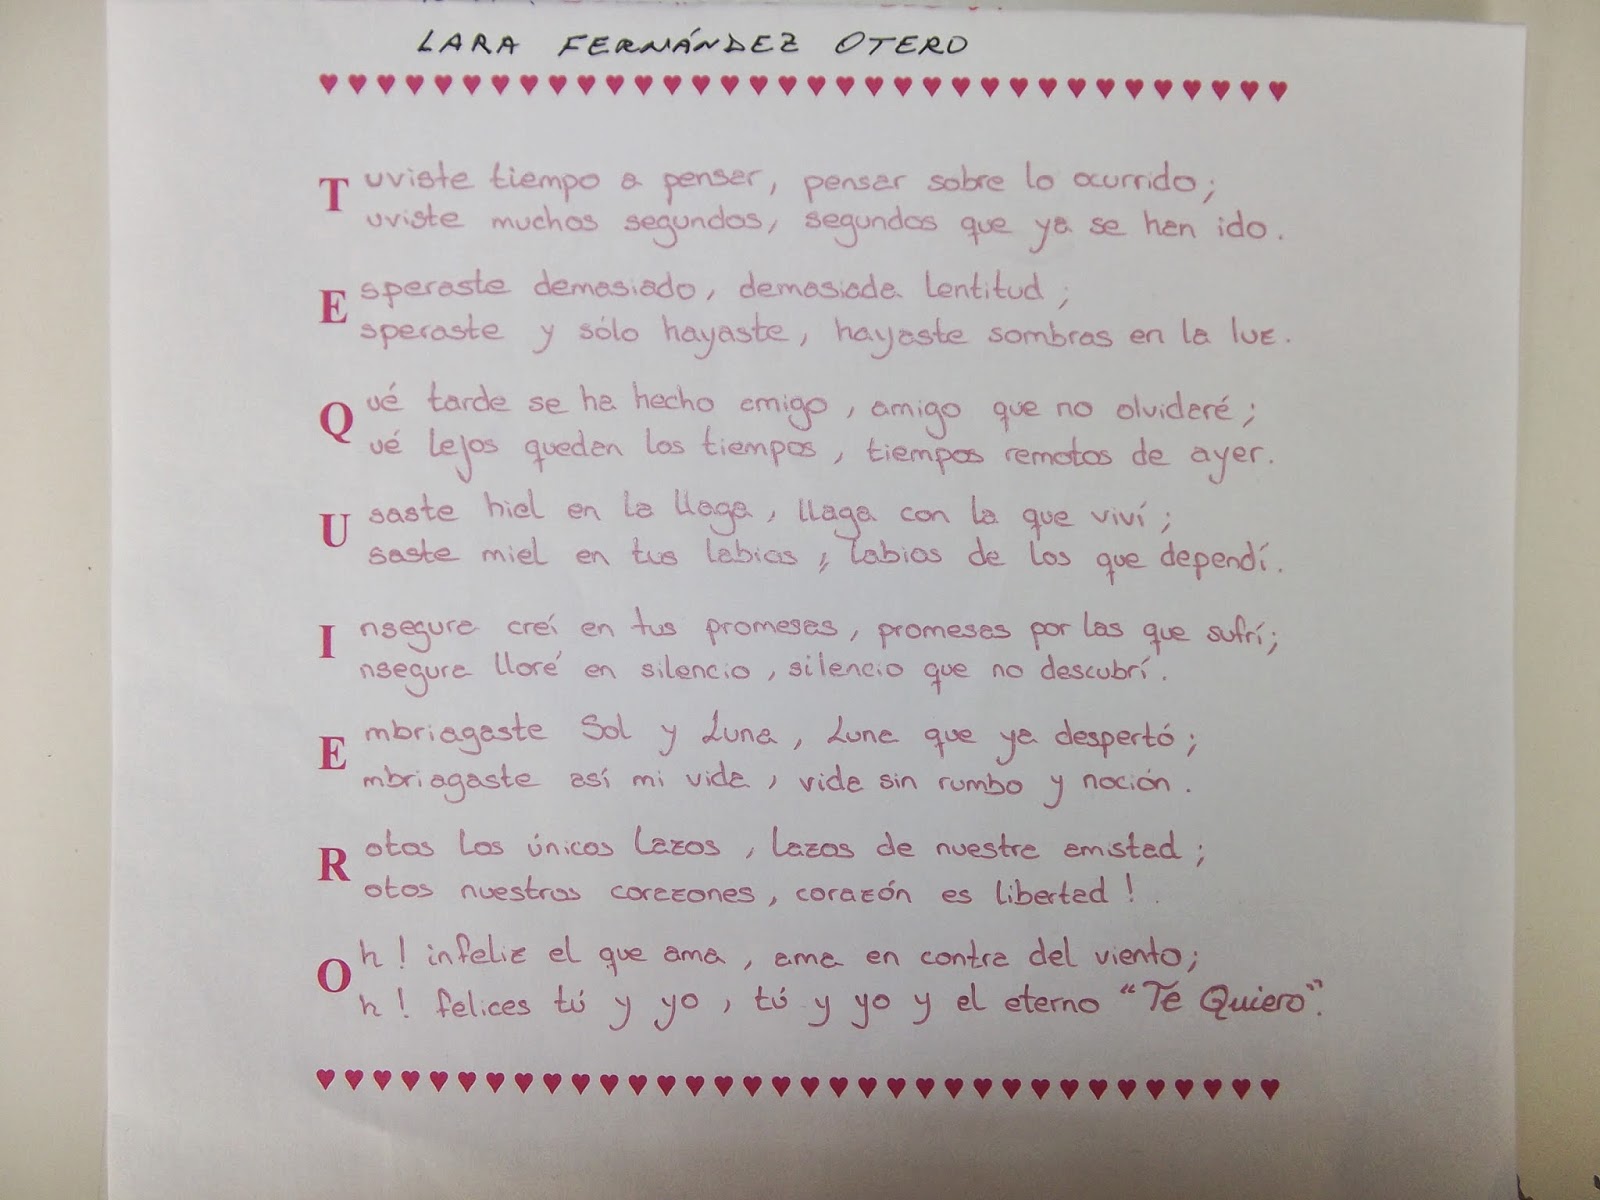 LARA FERNÁNDEZ OTERO
Tuviste tiempo a pensar, pensar sobre lo ocurrido;
uviste muchos segundos, segundos que ya se han ido.
Esperaste demasiado, demasiada lentitud;
speraste y sólo hayaste, hayaste sombras en la luz.
Qué tarde se ha hecho amigo, amigo que no olvidaré;
ué lejos quedan los tiempos, tiempos remotos de ayer.
Usaste hiel en la llaga, llaga con la que viví;
saste miel en tus labios, labios de los que dependí.
Insegura creí en tus promesas, promesas por las que sufrí;
nsegura lloré en silencio, silencio que no descubrí.
Embriagaste Sol y Luna, Luna que ya despertó;
mbriagaste así mi vida, vida sin rumbo y noción.
Rotos los únicos lazos, lazos de nuestra amistad;
otos nuestros corazones, corazón es libertad!.
Oh! infeliz el que ama, ama en contra del viento;
h! felices tú y yo, tú y yo y el eterno "Té Quiero".